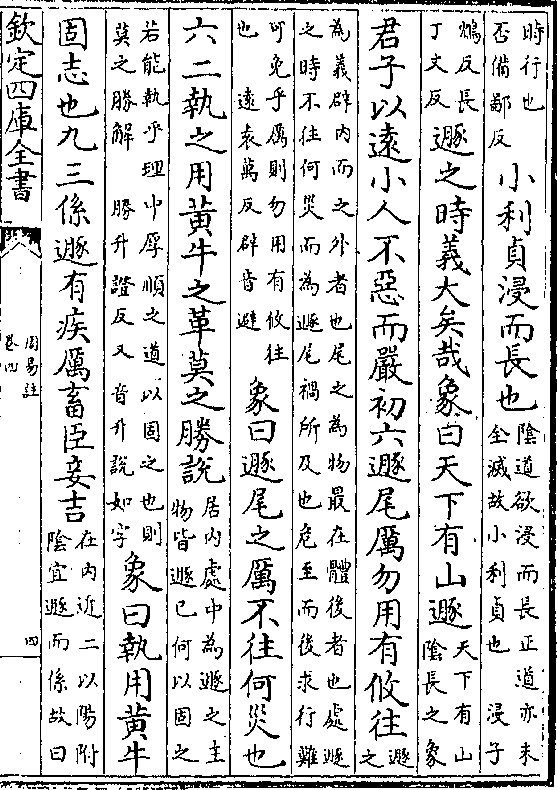 時行也
否備鄙反
小利貞浸而長也
陰道欲浸而長正道亦未
全滅故小利貞也 浸子
鴆反長
丁丈反
遯之時義大矣哉象曰天下有山遯
天下有山
陰長之象
君子以遠小人不惡而嚴初六遯尾厲勿用有攸往
遯
之
為義辟内而之外者也尾之為物最在體後者也處遯
之時不往何災而為遯尾禍所及也危至而後求行難
可免乎厲則勿用有攸往
也 遠袁萬反辟音避
象曰遯尾之厲不往何災也
六二執之用黃牛之革莫之勝說
居内處中為遯之主
物皆遯已何以固之
若能執乎理中厚順之道以固之也則
莫之勝解 勝升證反又音升說如字
象曰執用黃牛
固志也九三係遯有疾厲畜臣妾吉
在内近二以陽附
陰宜遯而係故曰
欽定四庫全書
周易註
卷四
四